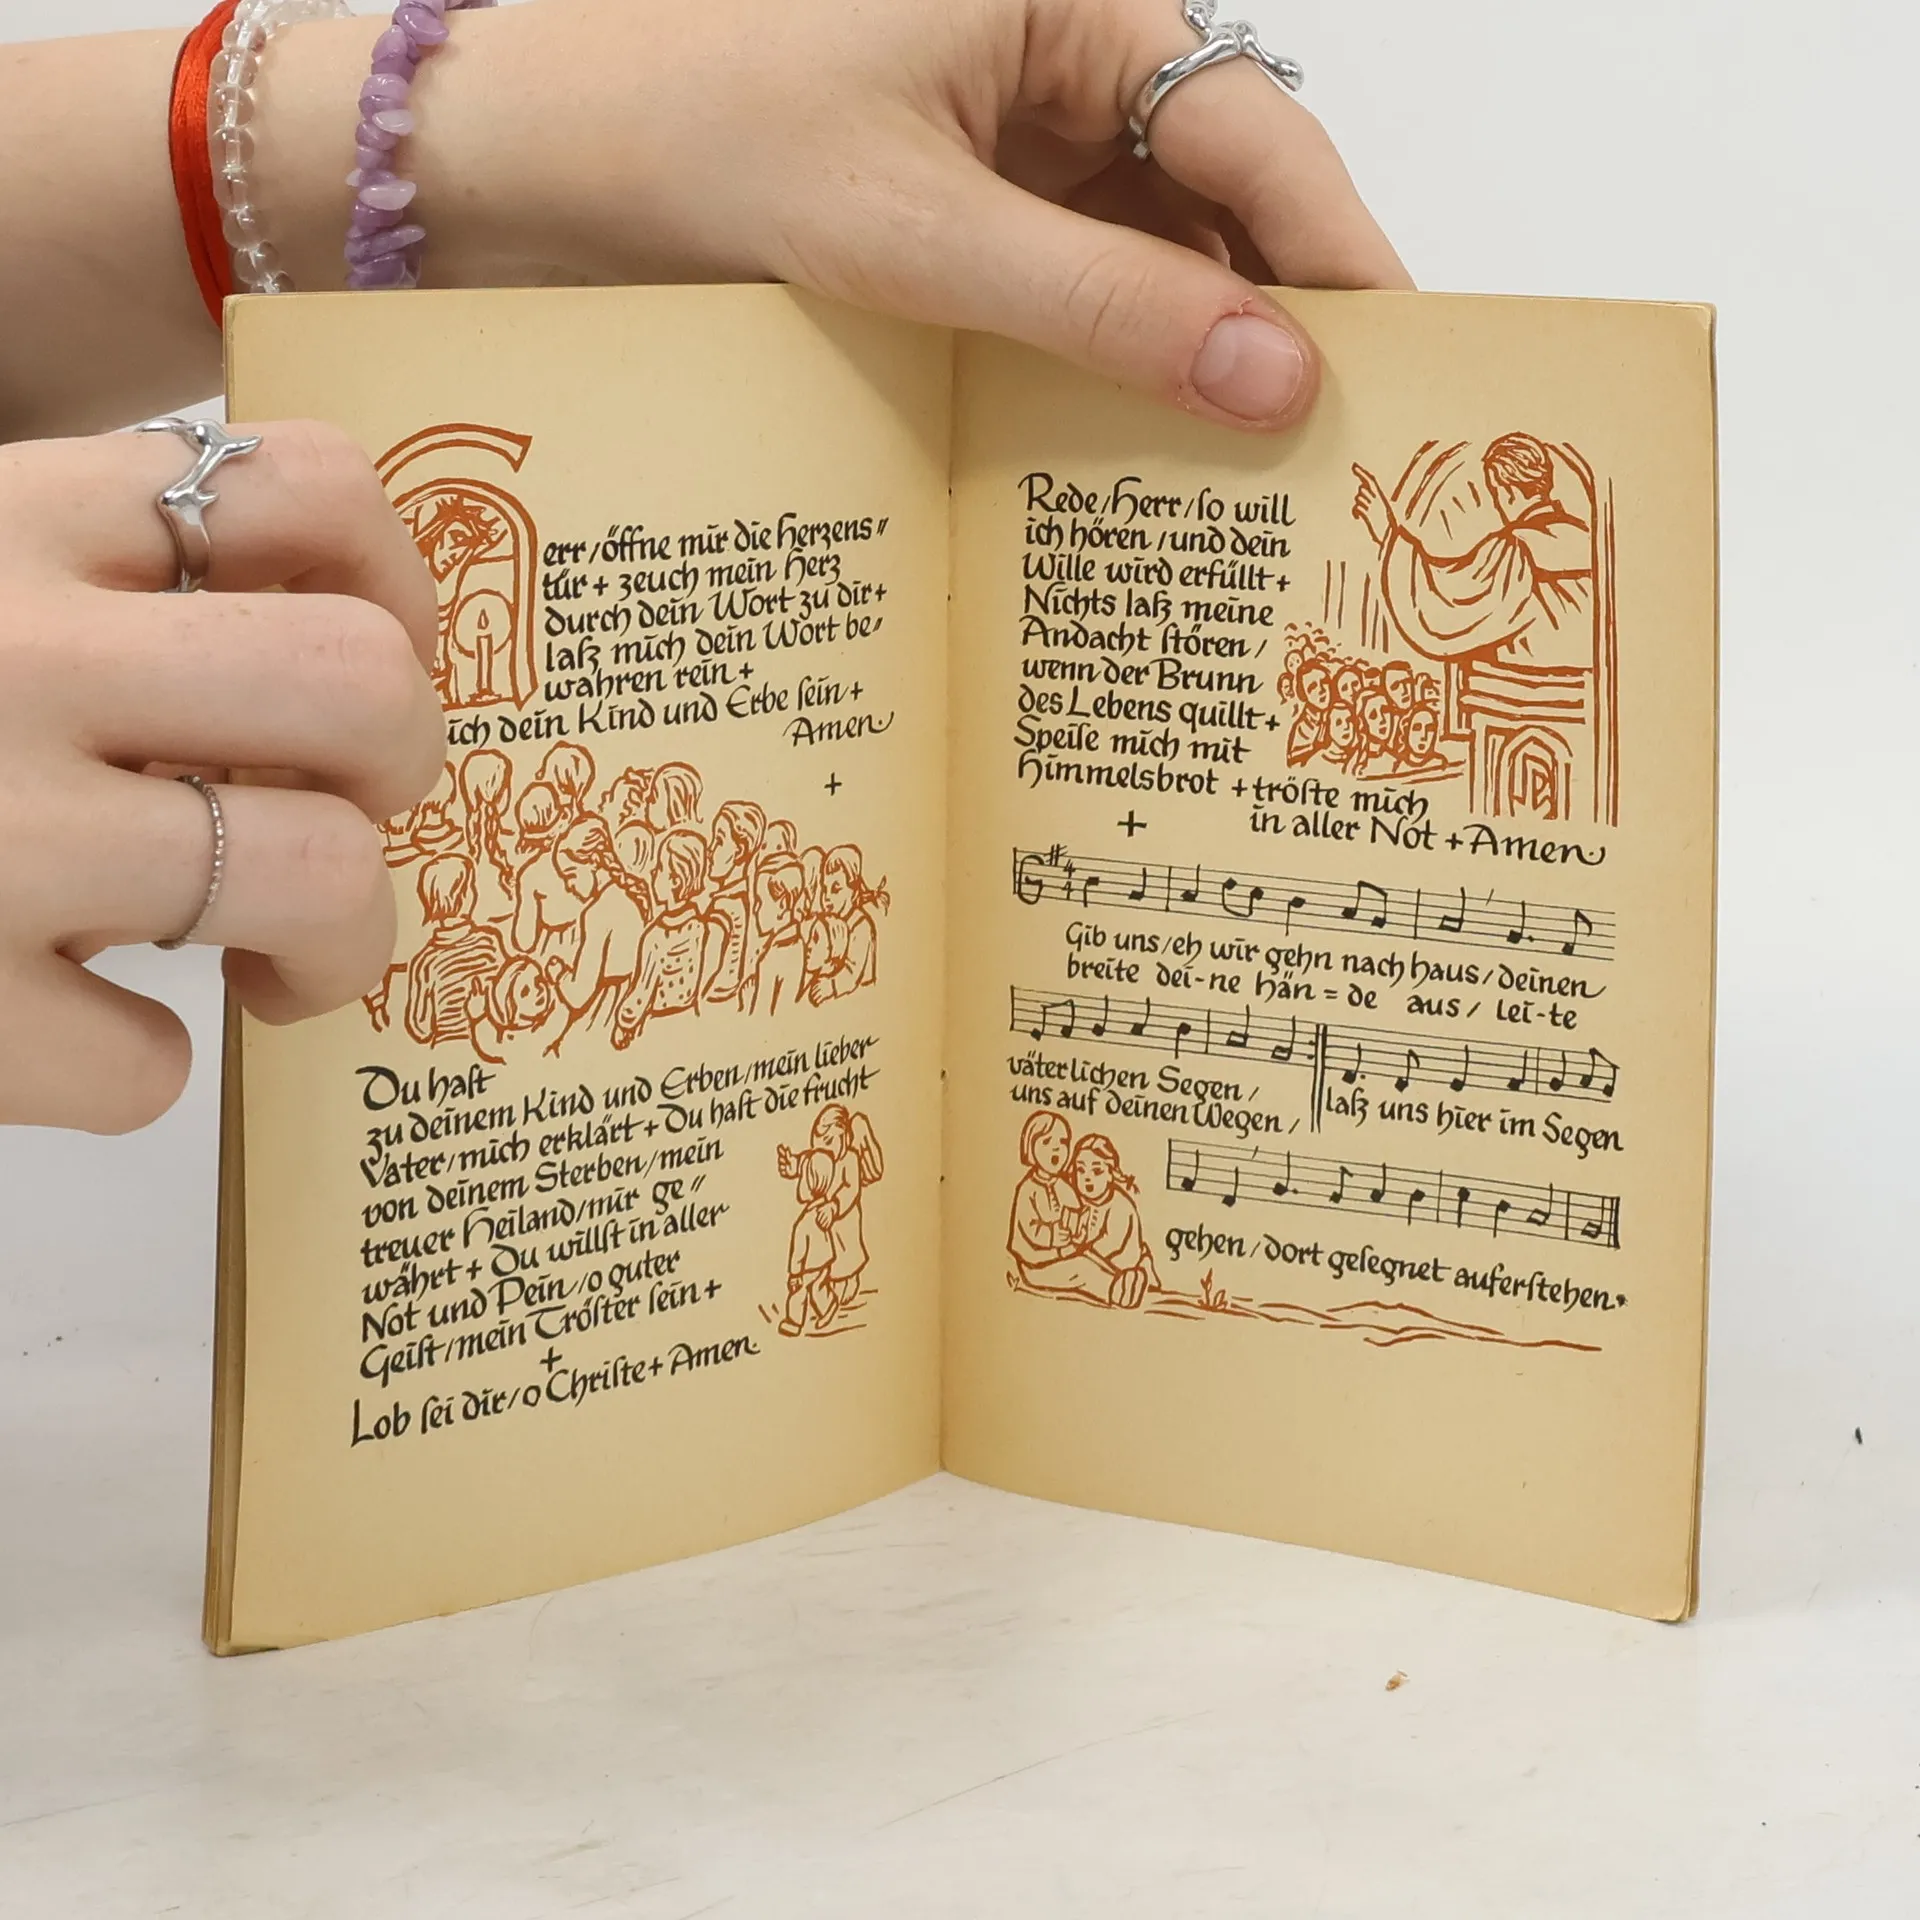 err/öffne mir die Herzens⸗
tür + zeuch mein Herz
durch dein Wort zu dir +
laß mich dein Wort be⸗
wahren rein +
ich dein Kind und Erbe sein +
Amen.
+
Du hast
zu deinem Kind und Erben/mein lieber
Vater/mich erklärt + Du hast die Frucht
von deinem Sterben/mein
treuer Heiland/mir ge⸗
währt + Du willst in aller
Not und Pein/o guter
Geist/mein Tröster sein +
+
Lob sei dir/o Christe + Amen.
Rede/Herr/so will
ich hören/und dein
Wille wird erfüllt +
Nichts laß meine
Andacht stören/
wenn der Brunn
des Lebens quillt +
Speise mich mit
Himmelsbrot + tröste mich
in aller Not + Amen.
+
Gib uns/eh wir gehn nach Haus/deinen
breite dei-ne Hän=de aus/ lei-te
väterlichen Segen/
uns auf deinen Wegen/
laß uns hier im Segen
gehen/dort gesegnet auferstehen.